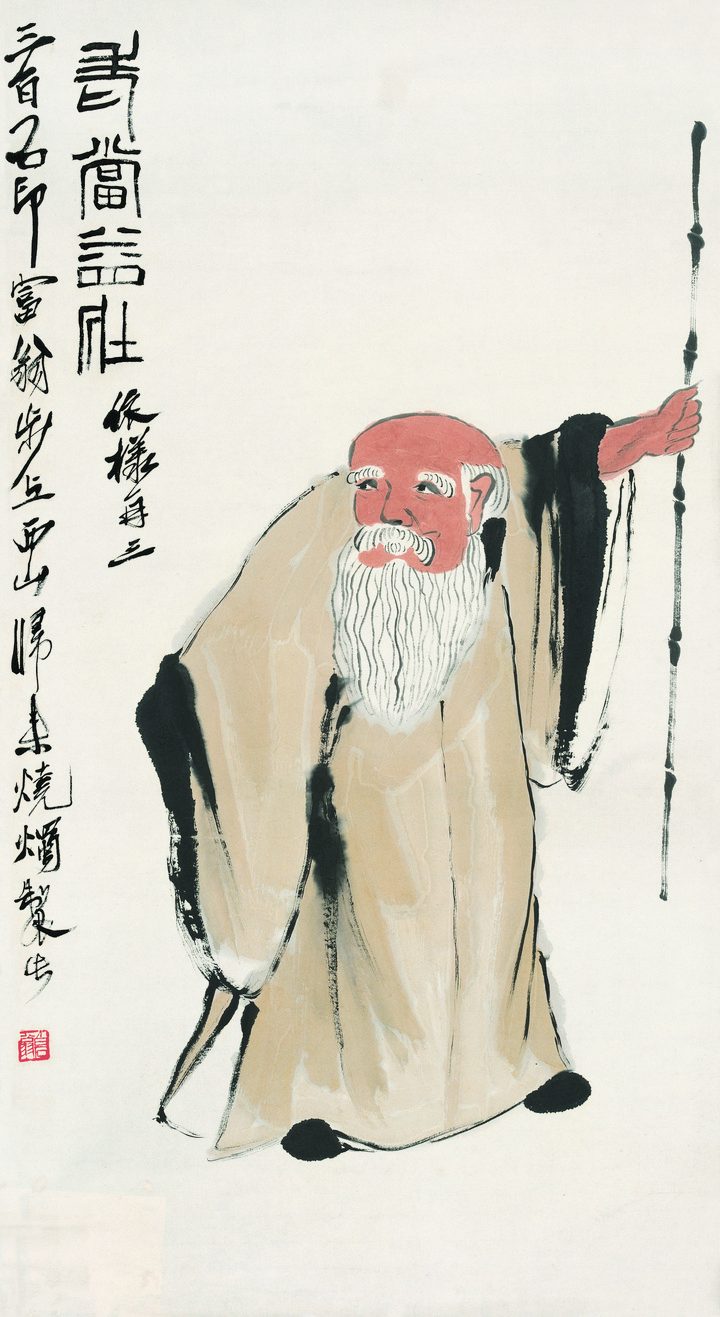 老當益壯
依樣再三
三百石印富翁步上西山歸來燒燭製